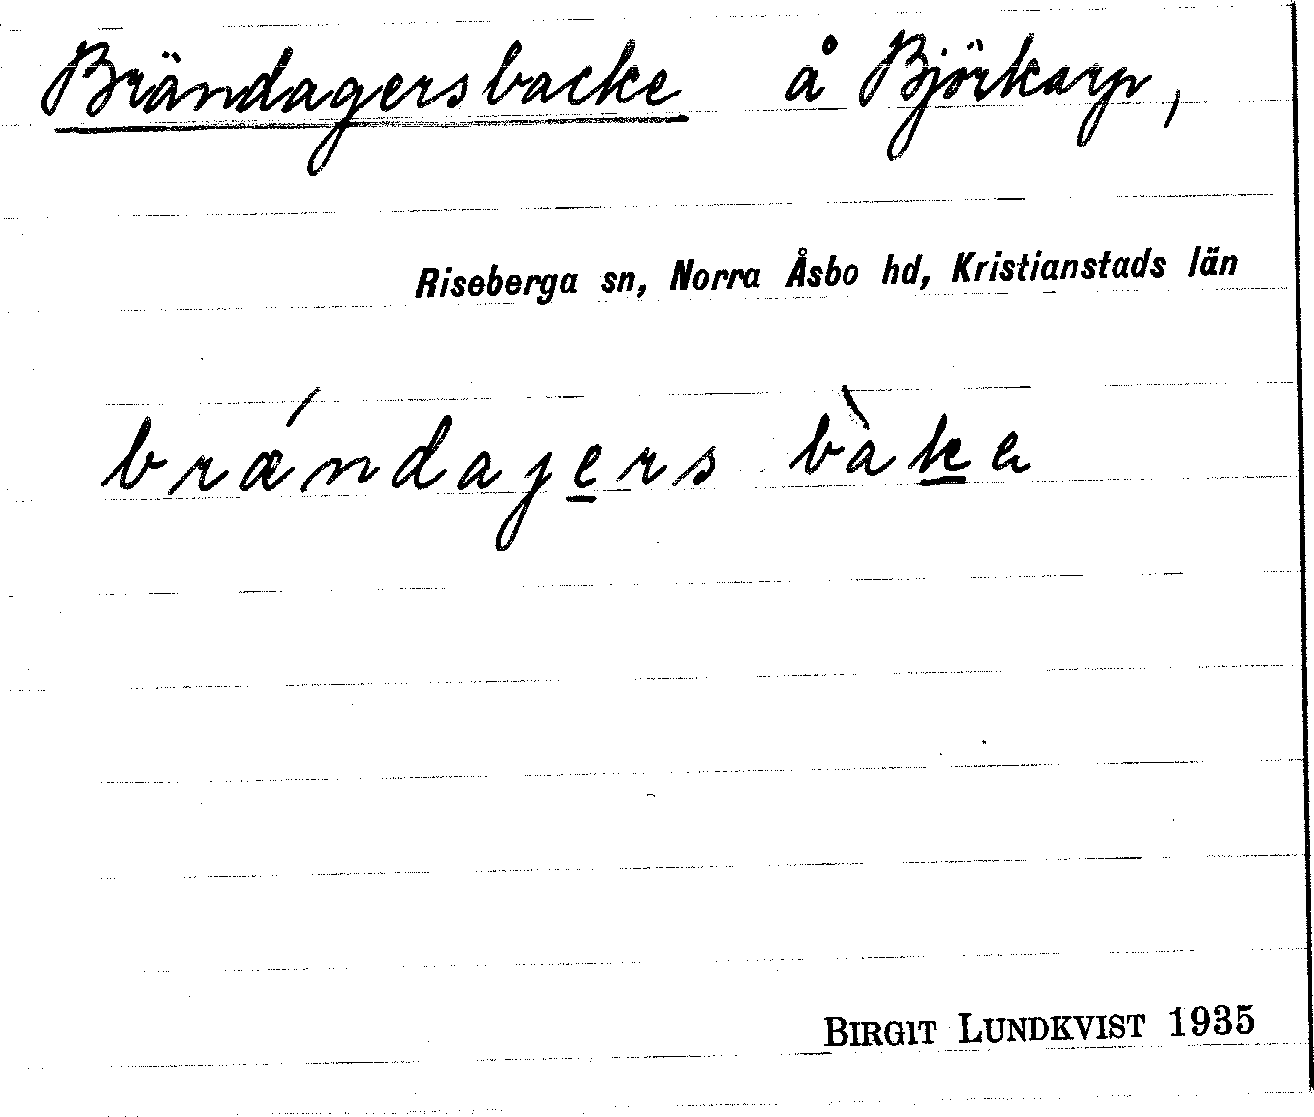 Brändagersbacke å Björkarp,
Riseberga sn, Norra Åsbo hd, Kristianstads län
brǽndagers bàka
BIRGIT LUNDKVIST 1935